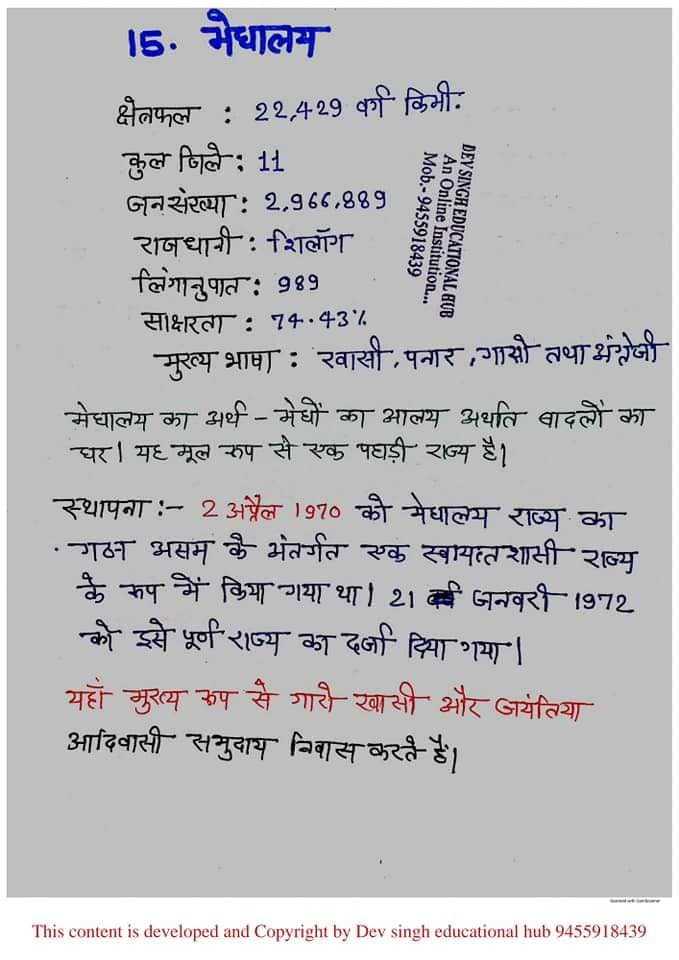 15. मेघालय
क्षेत्रफल : 22,429 वर्ग किमी.
कुल जिले : 11
जनसंख्या : 2,966,889
राजधानी : शिलॉंग
लिंगानुपात : 989
साक्षरता : 74.43%
मुख्य भाषा : खासी, पनार, गारो तथा अंग्रेजी
DEV SINGH EDUCATIONAL HUB
An Online Institution...
Mob.- 9455918439
मेघालय का अर्थ - मेघों का आलय अर्थात बादलों का
घर। यह मूल रूप से एक पहाड़ी राज्य है।
स्थापना :- 2 अप्रैल 1970 को मेघालय राज्य का
गठन असम के अंतर्गत एक स्वायत्तशासी राज्य
के रूप में किया गया था। 21 जनवरी 1972
को इसे पूर्ण राज्य का दर्जा दिया गया।
यहाँ मुख्य रूप से गारो खासी और जयंतिया
आदिवासी समुदाय निवास करते हैं।
Scanned with CamScanner
This content is developed and Copyright by Dev singh educational hub 9455918439